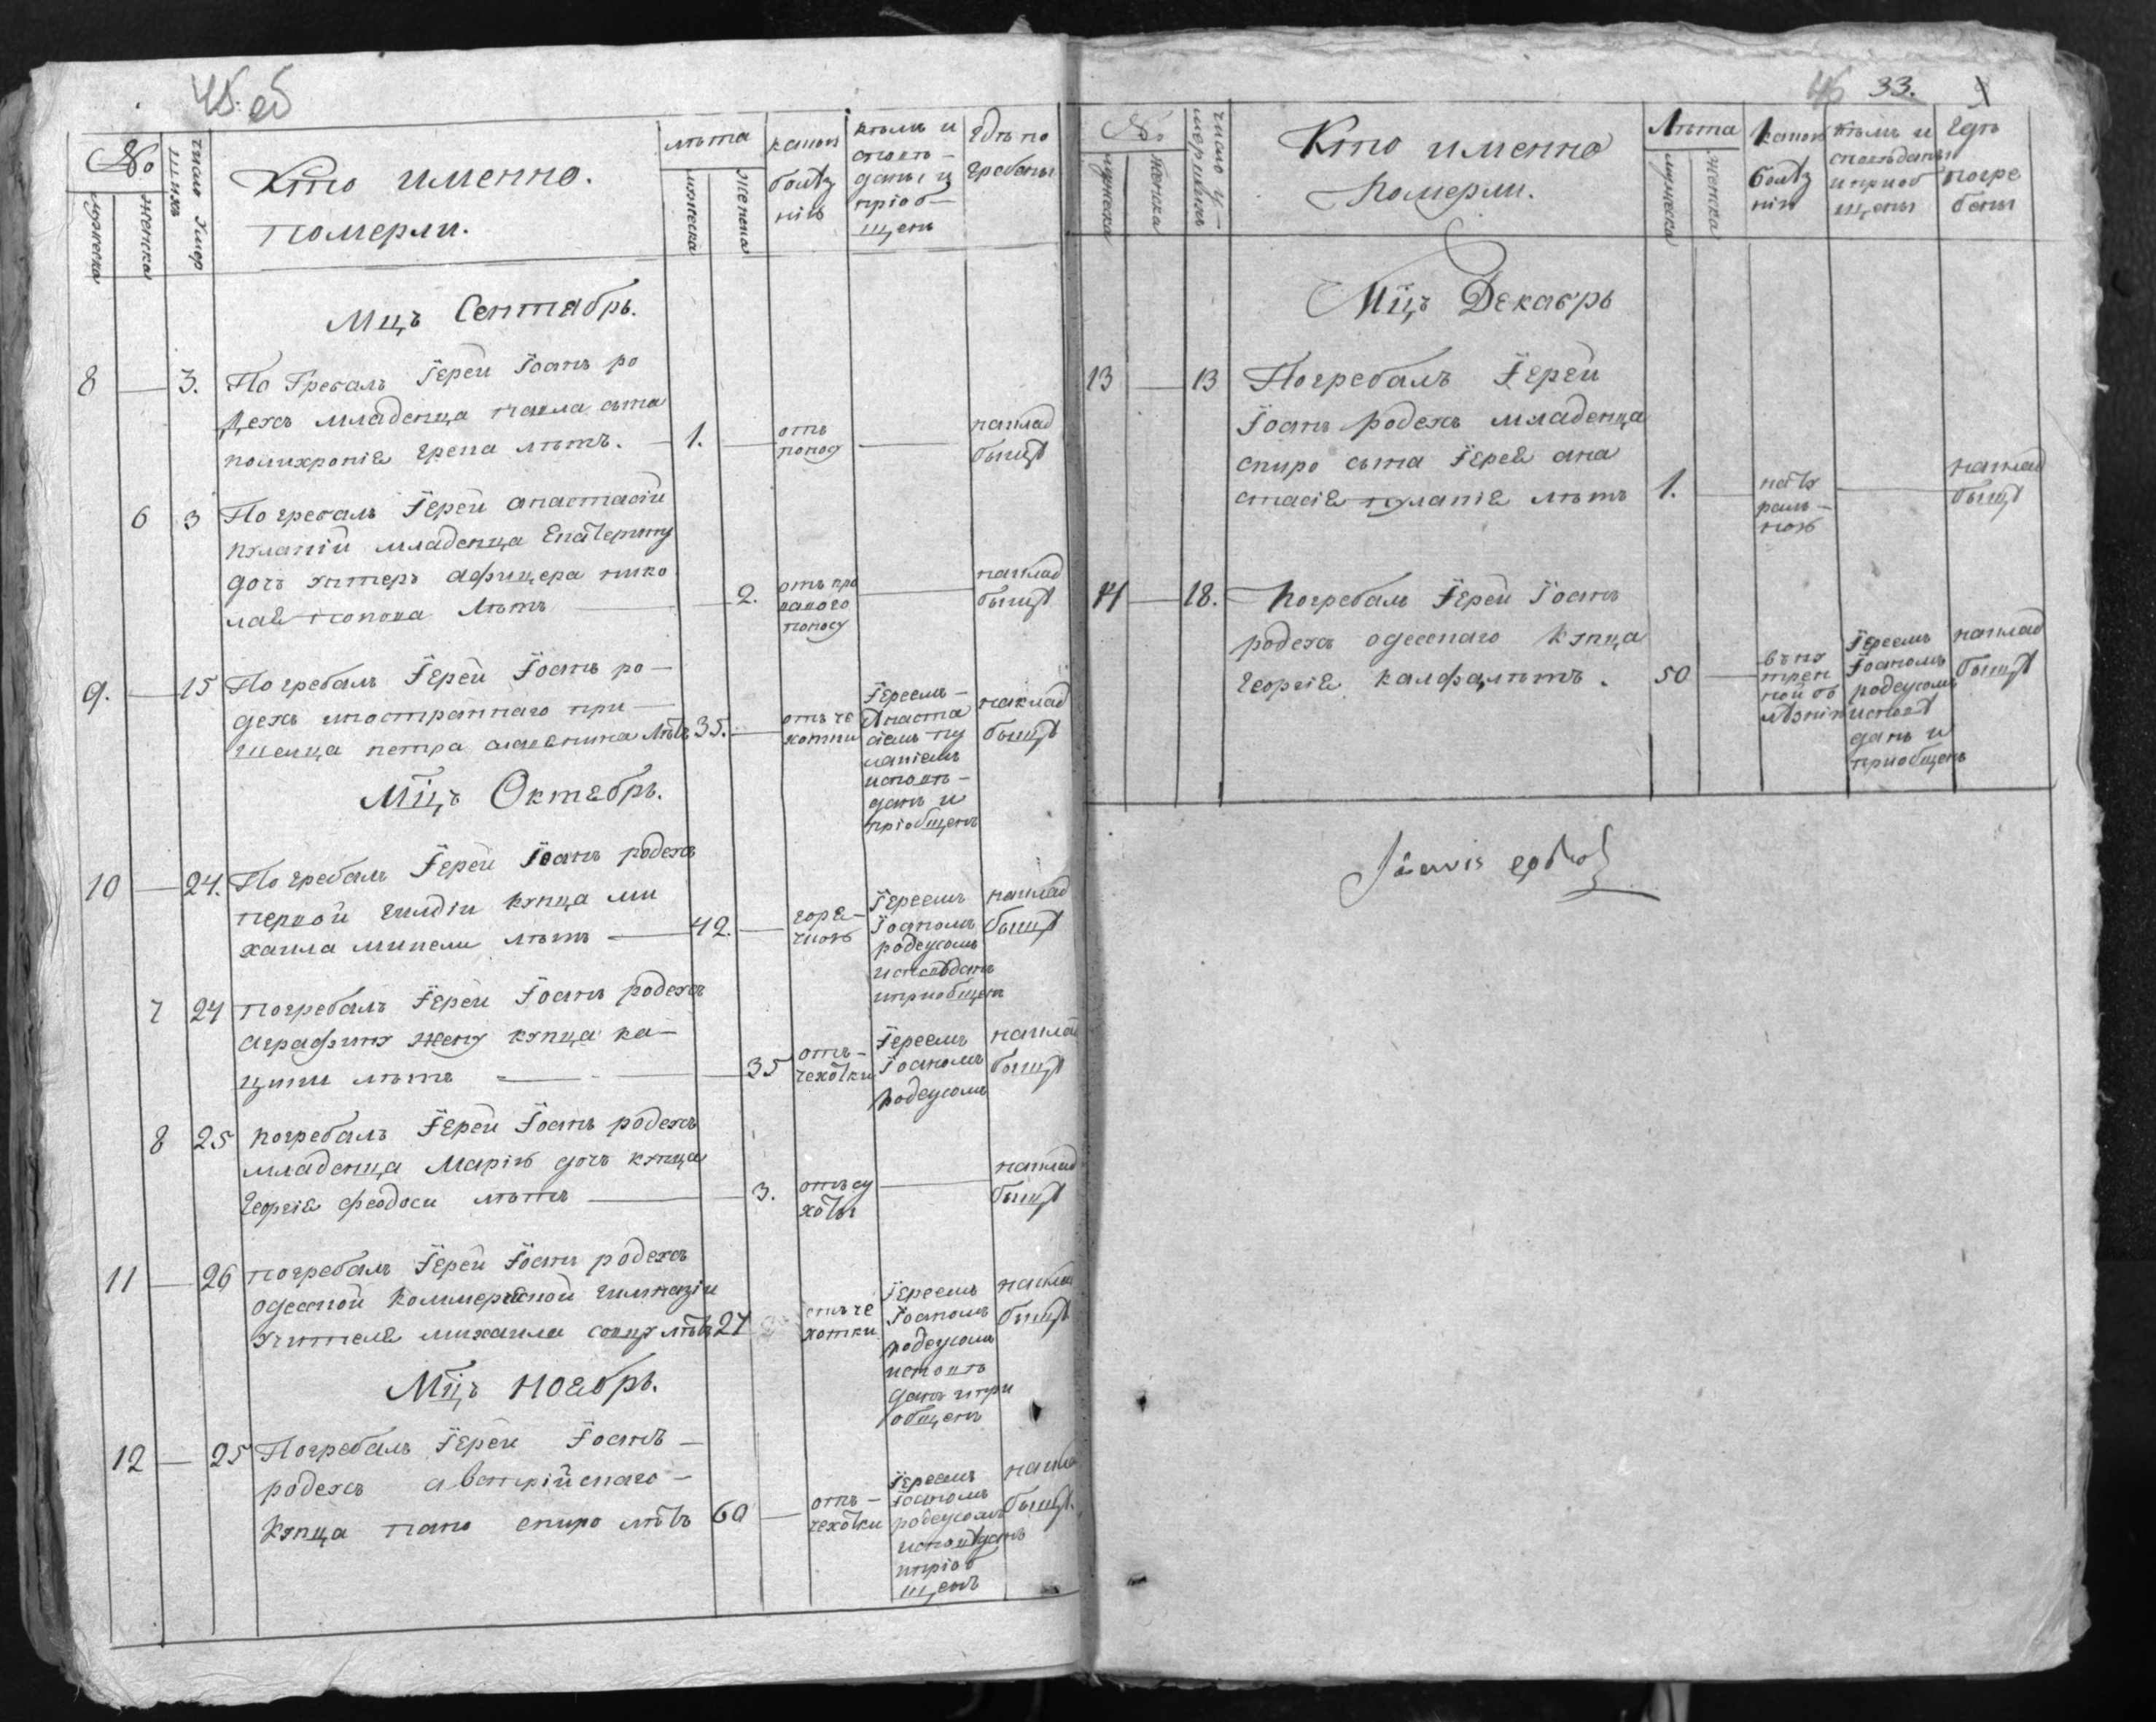 45 об
№
мужеска
женска
число умер
шихъ
Кто именно.
померли.
лѣта
мужеска
женска
какой
болѣз
нію
кѣмъ и
споvѣ-
даны и
пріоб-
щены
гдѣ по
гребены
Мцъ Сентябрь.
8 — 3. По Гребалъ Їерей Їоанъ ро
дехъ младенца павла сына
полихронія грека лѣтъ. — 1. — отъ поносу — на клад бищѣ
6 3 По гребалъ Їерей анастасій
пуланій младенца Екатерину
дочь унтеръ афицера нико
лая попова лѣтъ — 2. отъ кро ваваго поносу — на клад бищѣ
9. — 15 По гребалъ Їерей Їоанъ ро-
дехъ иностраннаго при-
шелца петра лѣтъ 35. — отъ че хотки Їереемъ Анаста сіемъ пу ланіемъ исповѣ- данъ и пріобщенъ на клад бищѣ
Мцъ Октябрь.
10 — 24. По гребалъ Їерей Їоанъ родехъ
первой гилдіи купца ми
хаила лѣтъ — 42. — горя- чкою Їереемъ Їоаномъ родеусомъ исповѣданъ и приобщенъ на клад бищѣ
7 24 погребалъ Їерей Їоанъ родехъ
аграфину жену купца ка-
цики лѣтъ — 35 отъ- чехотки Їереемъ Їоаномъ родеусомъ на клад бищѣ
8 25 погребалъ Їерей Їоанъ родехъ
младенца Марію дочь купца
георгія феодоси лѣтъ — 3. отъ су хоты — на клад бищѣ
11 — 26 погребалъ Їерей Їоанъ родехъ
одесской коммерческой гимназіи
учителя михаила лѣтъ 27 отъ че хотки Їереемъ Їоаномъ родеусомъ исповѣ данъ и при общенъ на клад бищѣ
Мцъ Ноябрь.
12 — 25 Погребалъ Їерей Їоанъ-
родехъ австрійскаго-
купца папо спиро лѣтъ 60 — отъ- чехотки Їереемъ Їоаномъ родеусомъ исповѣданъ и пріоб щенъ на клад бищѣ.
46 33.
№
мужеска
женска
число у-
мершихъ
Кто именно
Померли.
Лѣта
мужеска
женска
какой
болѣз
нію
кѣмъ и
споvѣданы
и приоб
щены
Гдѣ
погре
бены
Мцъ Декабрь
13 — 13 Погребалъ Їерей
Їоанъ родехъ младенца
спиро сына Їерея ана
стасія пуланія лѣтъ 1. — натура раль- ною — на клад бищѣ
14 — 18. Погребалъ Їерей Їоанъ
родехъ одесскаго купца
георгія калфа лѣтъ. 50 — внутрен ной бо лѣзнію Їереемъ Їоаномъ родеусомъ исповѣ данъ и приобщенъ на клад бищѣ